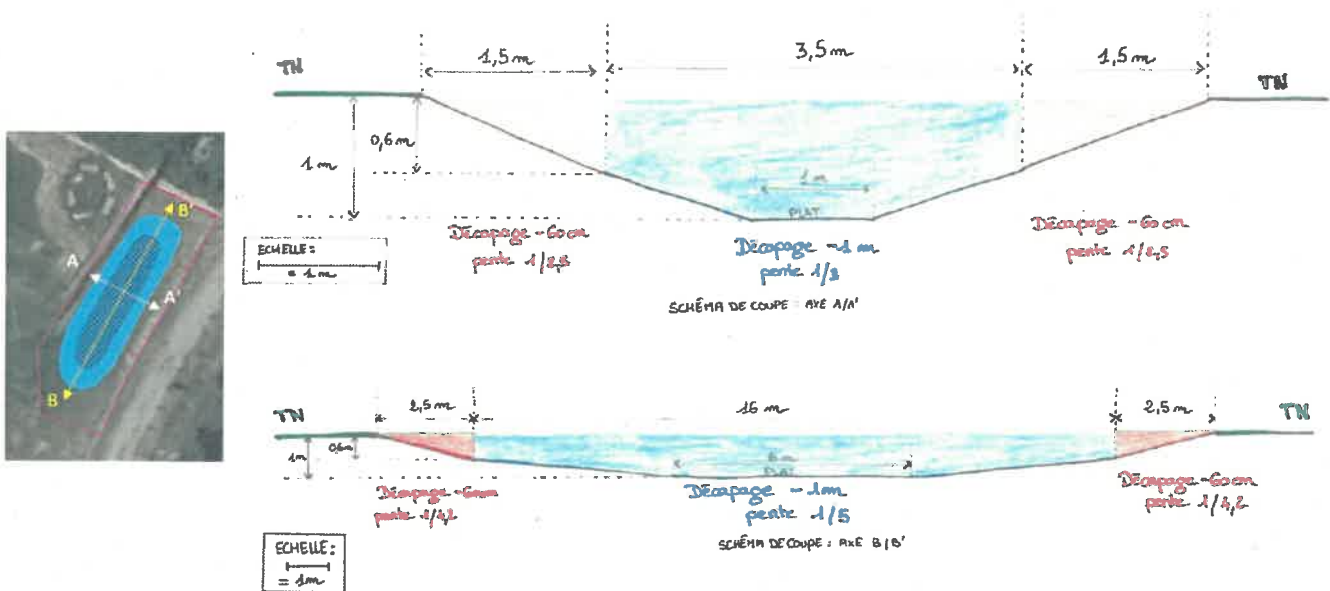 1,5m
3,5m
1,5m
TN
TN
0,6m
1m
1m
PLAT
ECHELLE:
= 1m
Décapage -60cm
pente 1/2,5
Décapage -1m
pente 1/3
Décapage -60cm
pente 1/2,5
SCHÉMA DE COUPE : AXE A/A'
B'
A
A'
B
TN
2,5m
16m
2,5m
TN
1m
0,6m
6m
PLAT
Décapage -60cm
pente 1/4,2
Décapage -1m
pente 1/5
Décapage -60cm
pente 1/4,2
ECHELLE:
= 1m
SCHÉMA DE COUPE : AXE B/B'